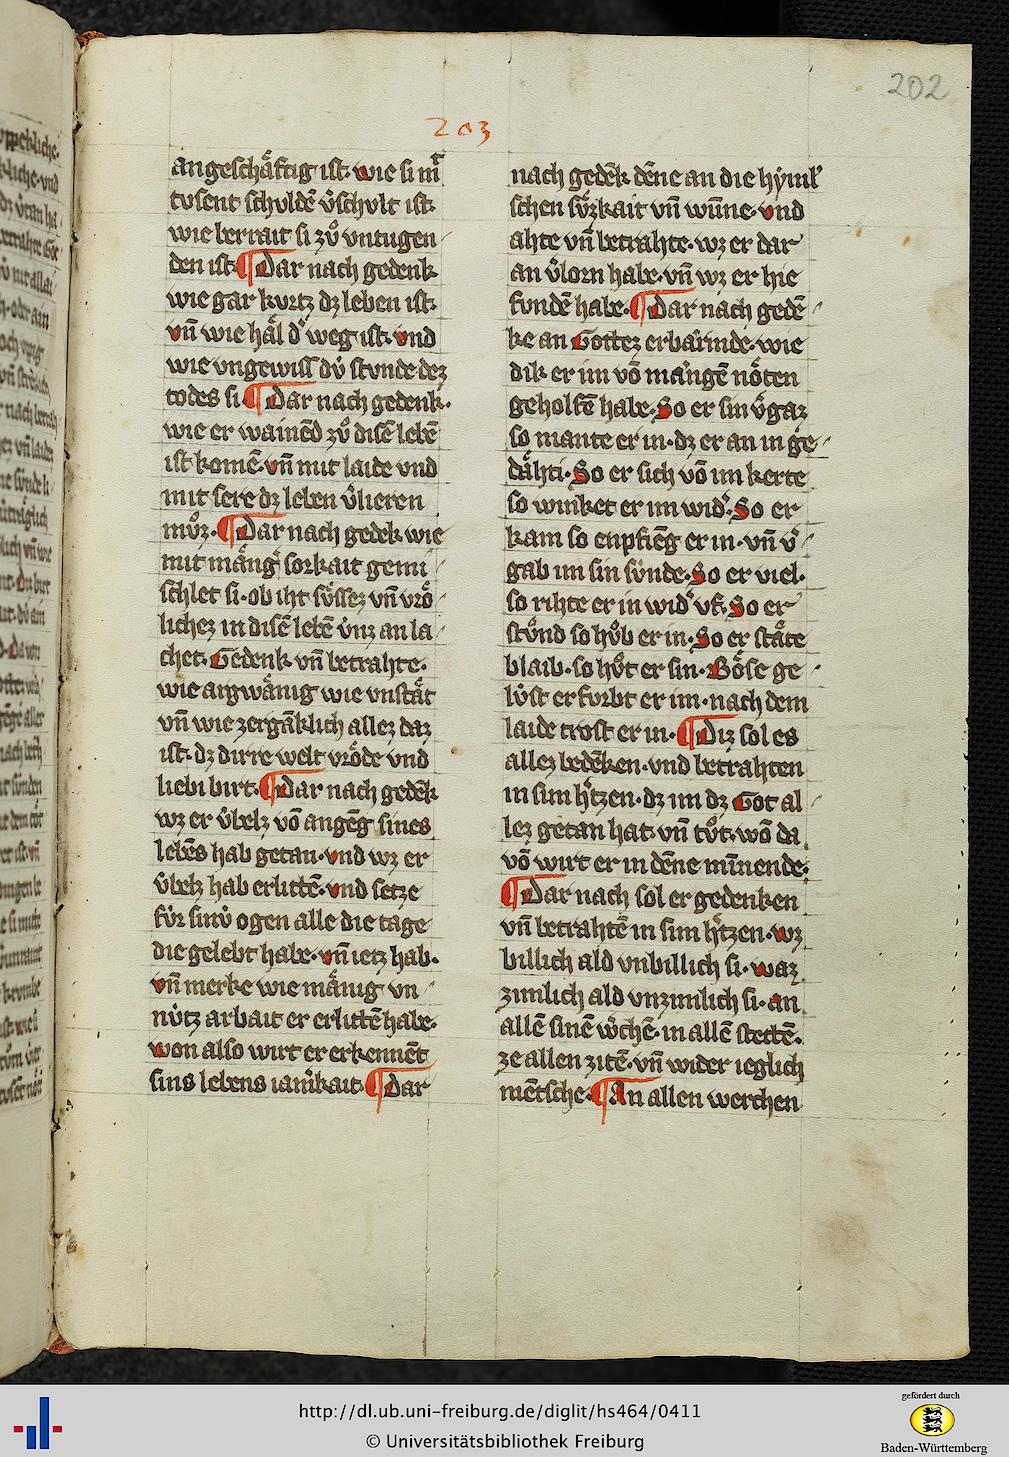 202
203
angeschaͤftig ist. wie si mᷓ
tusent schuldē v̓schult ist.
wie berrait si zuͦ vntugen
den ist. ¶ Dar nach gedenk
wie gar kurtz dz leben ist.
vn̄ wie haͤl d̓ weg ist. vnd
wie vngewiss duͥ stunde dez
todes si. ¶ Dar nach gedenk.
wie er wainēd zuͦ disē lebē
ist komē. vn̄ mit laide vnd
mit sere dz leben v̓lieren
muͦz. ¶ Dar nach gedēk wie
mit māng̓ sorkait gemi
schlet si. ob iht suͤssez vn̄ vroͤ
lichez in disē lebē v̓nz an la
chet. Gedenk vn̄ betrahte.
wie argwaͤnig wie vnstaͤt
vn̄ wie zergāklich allez daz
ist. dz dirre welt vroͤde vnd
liebi birt. ¶ Dar nach gedēk
wz er v̓belz vō angēg sines
lebēs hab getan. vnd wz er
v̓belz hab erlittē. vnd setze
fuͥr sinuͥ ogen alle die tage
die gelebt habe. vn̄ ietz hab.
vn̄ merke wie maͤnig vn
nuͥtz arbait er erlittē habe.
won also wirt er erkennēt
sins lebens iam̓kait. ¶ Dar
nach gedēk. dēne an die hyml̓
schen suͤzkait vn̄ wūne. vnd
ahte vn̄ betrahte. wz er dar
an v̓lorn habe. vn̄ wz er hie
fundē habe. ¶ Dar nach gedē
ke an Gottez erbaͤrmde. wie
dik er im vō mangē noͤten
geholfē habe. So er sin v̓gaz
so mante er in. dz er an in ge
daͤhti. So er sich vō im kerte
so winket er im wid̓. So er
kam so enpfieg er in. vn̄ v̓
gab im sin suͥnde. So er viel.
so rihte er in wid̓ vf. So er
stuͦnd so huͦb er in. So er staͤte
blaib. so huͦt er sin. Boͤse ge
luͥst er furbt er im. nach dem
laide trost er in. ¶ Diz sol es
allez bedēken. vnd betrahten
in sim h̓tzen. dz im dz Got al
lez getan hat. vn̄ tuͦt. wō da
vō wirt er in dēne mīnende.
¶ Dar nach sol er gedenken
vn̄ betrahtē in sim h̓tzen. wz
billich ald vnbillich si. waz
zimlich ald vnzimlich si. an
allē sinē w̓chē. in allē stettē.
ze allen zitē. vn̄ wider ieglich
mētsche. ¶ An allen werchen
http://dl.ub.uni-freiburg.de/diglit/hs464/0411
© Universitätsbibliothek Freiburg
gefördert durch
Baden-Württemberg